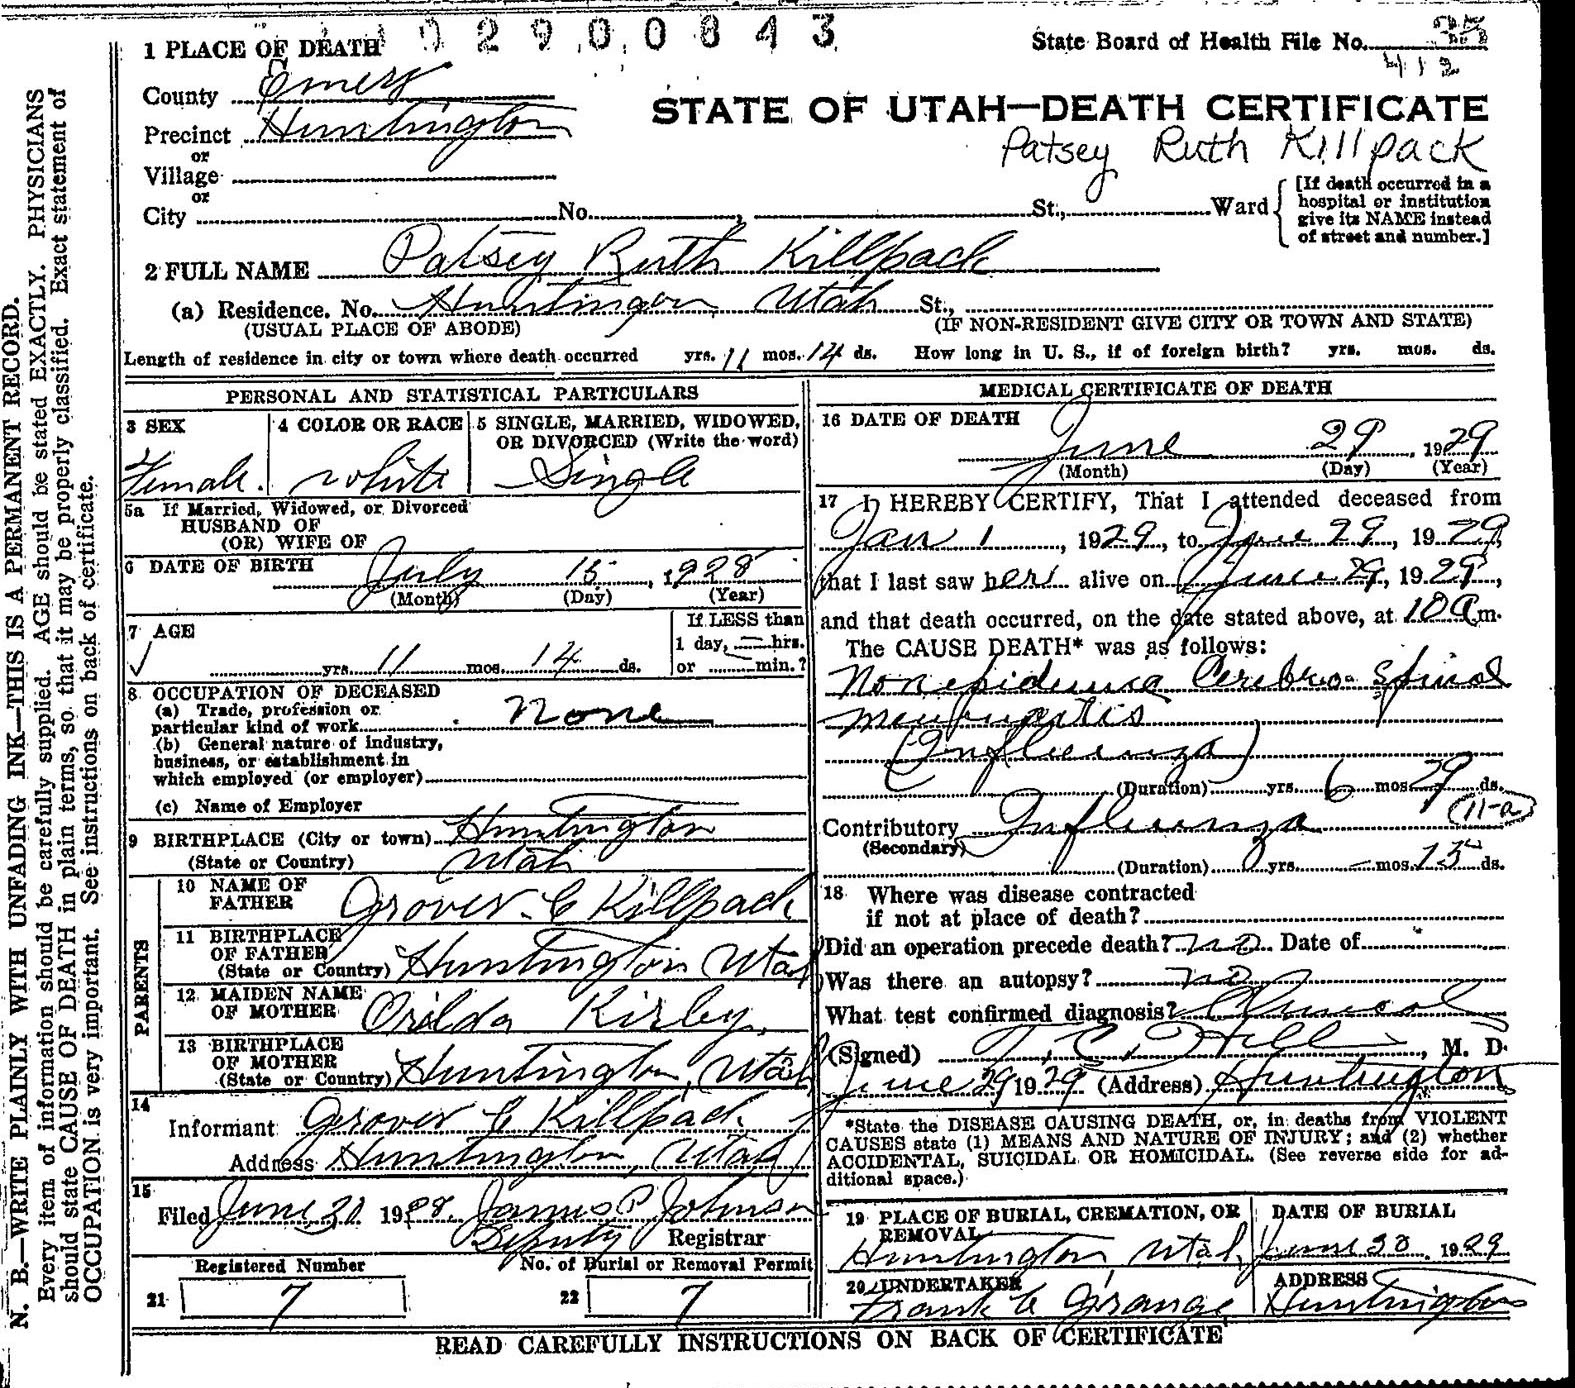 1 0 2 9 0 0 8 4 3
State Board of Health File No. 35
412
1 PLACE OF DEATH
County Emery
STATE OF UTAH—DEATH CERTIFICATE
Precinct Huntington
Patsey Ruth Killpack
or
Village
or
City No. , St., Ward
[If death occurred in a
hospital or institution
give its NAME instead
of street and number.]
2 FULL NAME Patsey Ruth Killpack
(a) Residence. No. Huntington, Utah St.,
(USUAL PLACE OF ABODE) (IF NON-RESIDENT GIVE CITY OR TOWN AND STATE)
Length of residence in city or town where death occurred yrs. 11 mos. 14 ds. How long in U. S., if of foreign birth? yrs. mos. ds.
PERSONAL AND STATISTICAL PARTICULARS
3 SEX
Female.
4 COLOR OR RACE
White
5 SINGLE, MARRIED, WIDOWED,
OR DIVORCED (Write the word)
Single
5a If Married, Widowed, or Divorced
HUSBAND OF
(OR) WIFE OF
6 DATE OF BIRTH July 15, 1928
(Month) (Day) (Year)
7 AGE
yrs. 11 mos. 14 ds.
If LESS than
1 day, — hrs.
or — min.?
8 OCCUPATION OF DECEASED
(a) Trade, profession or
particular kind of work None
(b) General nature of industry,
business, or establishment in
which employed (or employer)
(c) Name of Employer
9 BIRTHPLACE (City or town) Huntington
(State or Country) Utah
PARENTS
10 NAME OF
FATHER Grover C Killpack
11 BIRTHPLACE
OF FATHER
(State or Country) Huntington Utah
12 MAIDEN NAME
OF MOTHER Orilda Kirby
13 BIRTHPLACE
OF MOTHER
(State or Country) Huntington, Utah
14
Informant Grover C Killpack
Address Huntington, Utah
15
Filed June 30 1928. James P Johnson
Deputy Registrar
Registered Number No. of Burial or Removal Permit
21 7 22 7
MEDICAL CERTIFICATE OF DEATH
16 DATE OF DEATH
June 29, 1929
(Month) (Day) (Year)
17 I HEREBY CERTIFY, That I attended deceased from
Jan 1, 1929, to June 29, 1929,
that I last saw her alive on June 29, 1929,
and that death occurred, on the date stated above, at 10 a m.
The CAUSE DEATH* was as follows:
Non epidemic Cerebro-spinal
(Influenza)
(Duration) yrs. 6 mos. 29 ds.
(11-a)
Contributory Influenza
(Secondary)
(Duration) yrs. — mos. 15 ds.
18 Where was disease contracted
if not at place of death?
Did an operation precede death? no Date of
Was there an autopsy? no
What test confirmed diagnosis? Clinical
(Signed) T. C. Hill, M. D.
June 29 1929 (Address) Huntington
*State the DISEASE CAUSING DEATH, or, in deaths from VIOLENT
CAUSES state (1) MEANS AND NATURE OF INJURY; and (2) whether
ACCIDENTAL, SUICIDAL OR HOMICIDAL. (See reverse side for ad-
ditional space.)
19 PLACE OF BURIAL, CREMATION, OR
REMOVAL
Huntington Utah
DATE OF BURIAL
June 30 1929
20 UNDERTAKER
Frank C Grange
ADDRESS
Huntington
READ CAREFULLY INSTRUCTIONS ON BACK OF CERTIFICATE
N. B.—WRITE PLAINLY WITH UNFADING INK—THIS IS A PERMANENT RECORD.
Every item of information should be carefully supplied. AGE should be stated EXACTLY. PHYSICIANS
should state CAUSE OF DEATH in plain terms, so that it may be properly classified. Exact statement of
OCCUPATION is very important. See instructions on back of certificate.